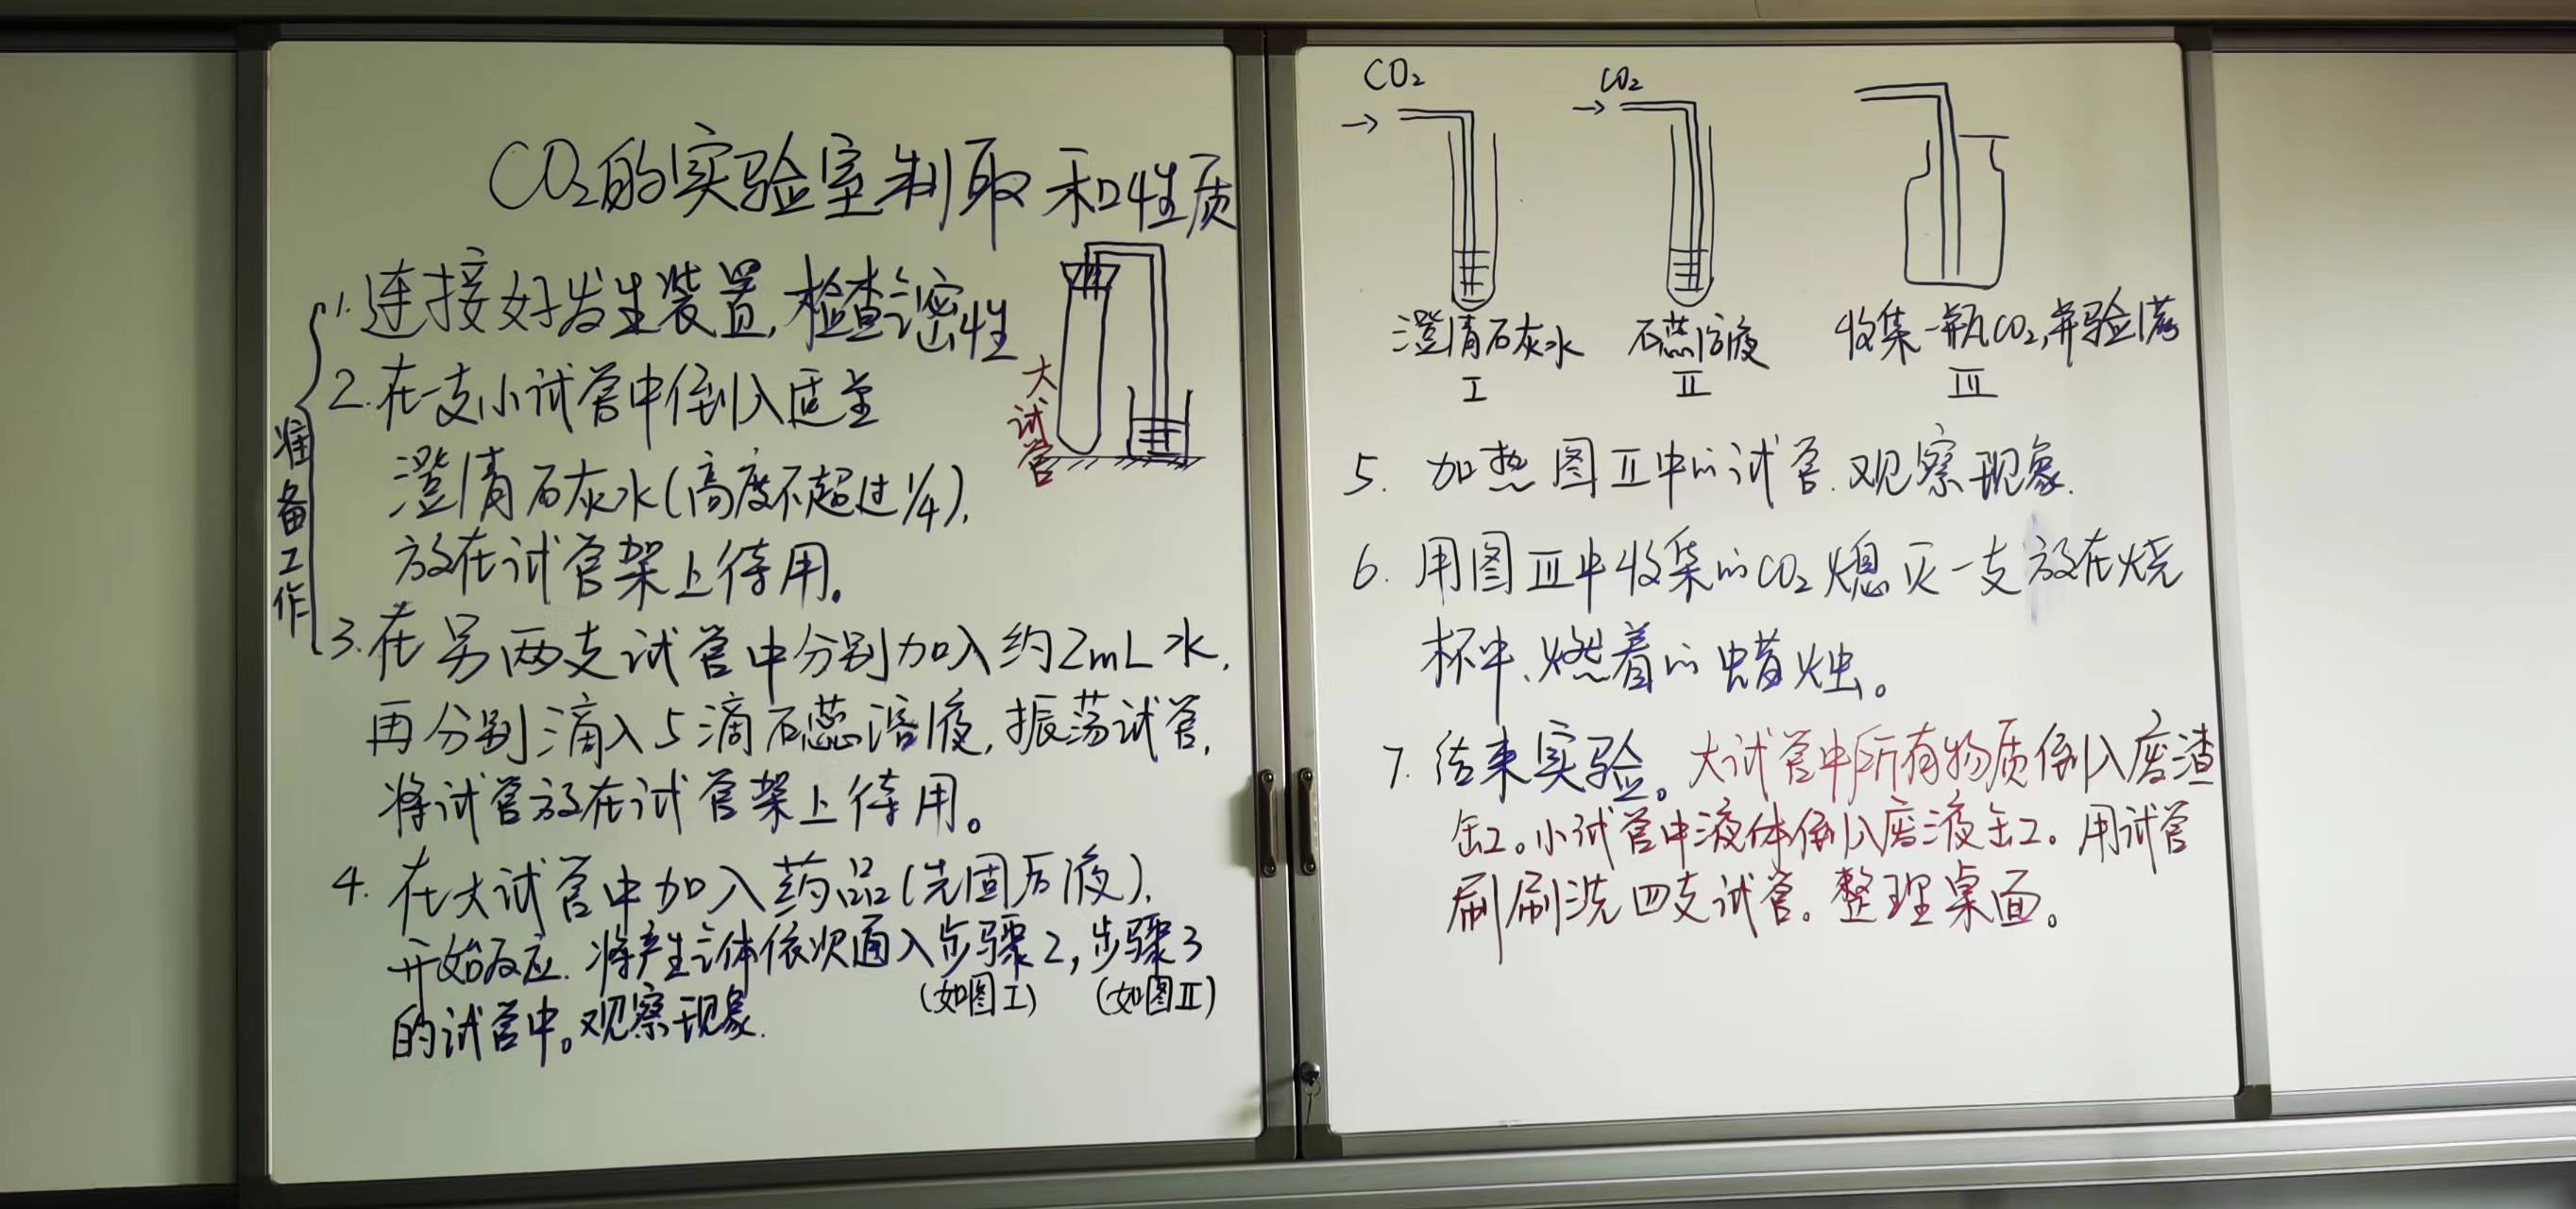 CO₂的实验室制取和性质
准备工作
1.连接好发生装置,检查气密性
2.在一支小试管中倒入适量
澄清石灰水(高度不超过1/4),
放在试管架上待用。
大试管
3.在另两支试管中分别加入约2mL水,
再分别滴入5滴石蕊溶液,振荡试管,
将试管放在试管架上待用。
4.在大试管中加入药品(先固后液),
开始反应.将产生气体依次通入步骤2,步骤3
(如图Ⅰ) (如图Ⅱ)
的试管中。观察现象.
CO₂ CO₂
澄清石灰水 石蕊溶液 收集一瓶CO₂,并验满
Ⅰ Ⅱ Ⅲ
5. 加热图Ⅱ中的试管.观察现象.
6. 用图Ⅲ中收集的CO₂熄灭一支放在烧
杯中、燃着的蜡烛。
7. 结束实验。大试管中所有物质倒入废渣
缸。小试管中液体倒入废液缸。用试管
刷刷洗四支试管。整理桌面。